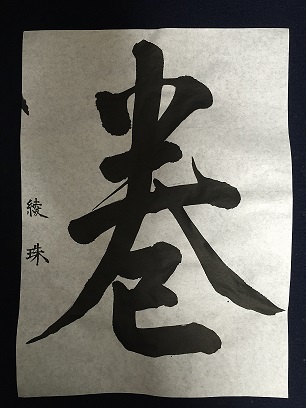 巻
綾珠